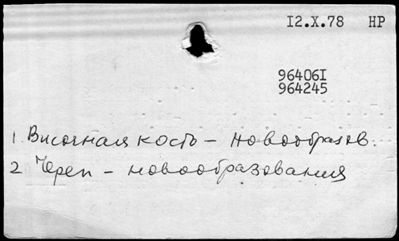 I2.X.78 НР
96406I
964245
1. Височная кость – новообразов.
2 Череп – новообразования